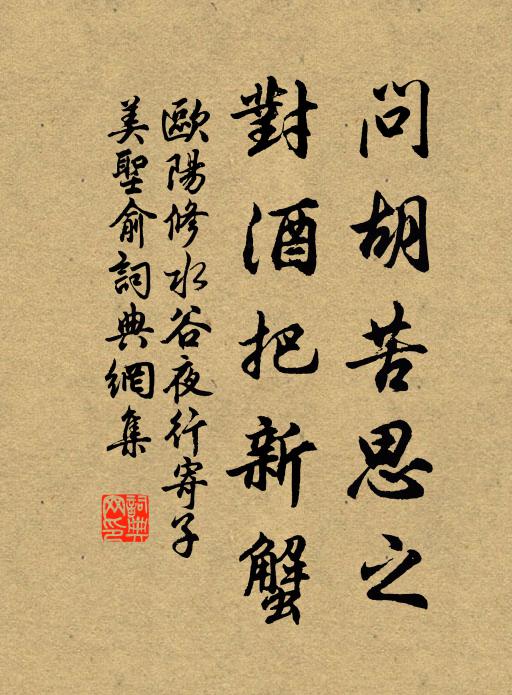 問胡苦思之
對酒把新蟹
歐陽修水谷夜行寄子
美聖俞詞典網集
詞典
网印